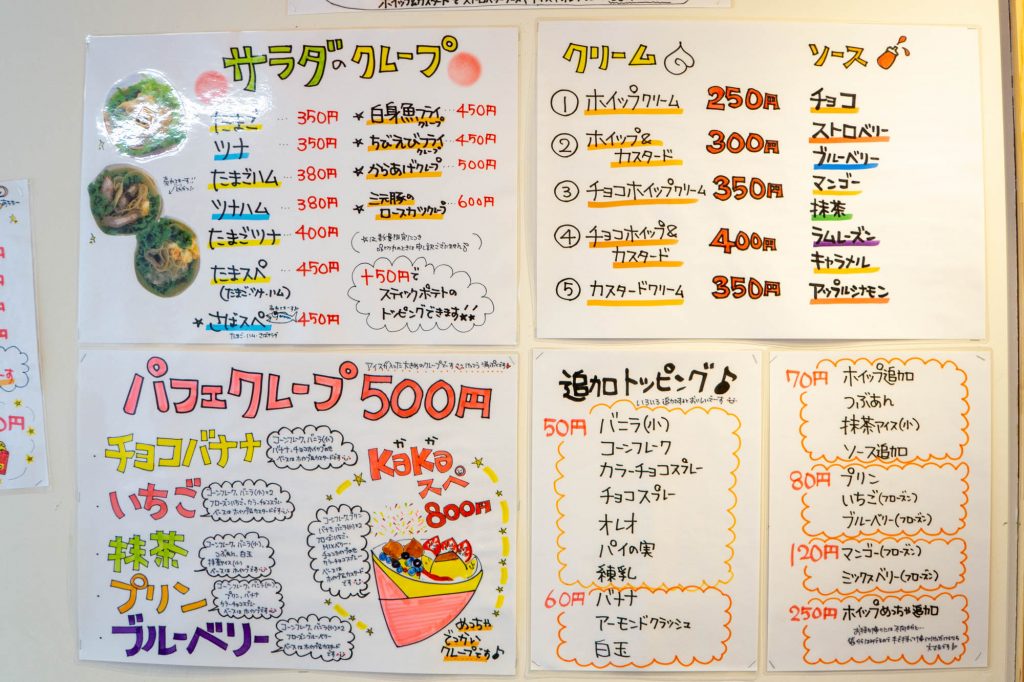 サラダのクレープ
たまご … 350円
ツナ … 350円
たまごハム … 380円
ツナハム … 380円
たまごツナ … 400円
たまスペ … 450円
(たまご・ツナ・ハム)
★さばスペ 450円
たまご・ハム・さばサンド
★白身魚フライクレープ … 450円
★ちびえびフライクレープ … 450円
★からあげクレープ … 500円
★三元豚の
ロースカツクレープ … 600円
+50円で
スティックポテトの
トッピングできます!!
クリーム
① ホイップクリーム 250円
② ホイップ&
カスタード 300円
③ チョコホイップクリーム 350円
④ チョコホイップ&
カスタード 400円
⑤ カスタードクリーム 350円
ソース
チョコ
ストロベリー
ブルーベリー
マンゴー
抹茶
ラムレーズン
キャラメル
アップルシナモン
パフェクレープ 500円
チョコバナナ
コーンフレーク、バニラ(小)
いちご
コーンフレーク、バニラ(小)×2
抹茶
コーンフレーク、バニラ(小)、
つぶあん、白玉
抹茶アイス(小)
プリン
コーンフレーク、バニラ(小)、
プリン、バナナ
ブルーベリー
コーンフレーク、バニラ(小)×2
フローズンブルーベリー
かか
KaKaの
スペ
800円
めっちゃ
でっかい
クレープです♪
追加トッピング♪
50円 バニラ(小)
コーンフレーク
カラーチョコスプレー
チョコスプレー
オレオ
パイの実
練乳
60円 バナナ
アーモンドクラッシュ
白玉
70円 ホイップ追加
つぶあん
抹茶アイス(小)
ソース追加
80円 プリン
いちご(フローズン)
ブルーベリー(フローズン)
120円 マンゴー(フローズン)
ミックスベリー(フローズン)
250円 ホイップめっちゃ追加